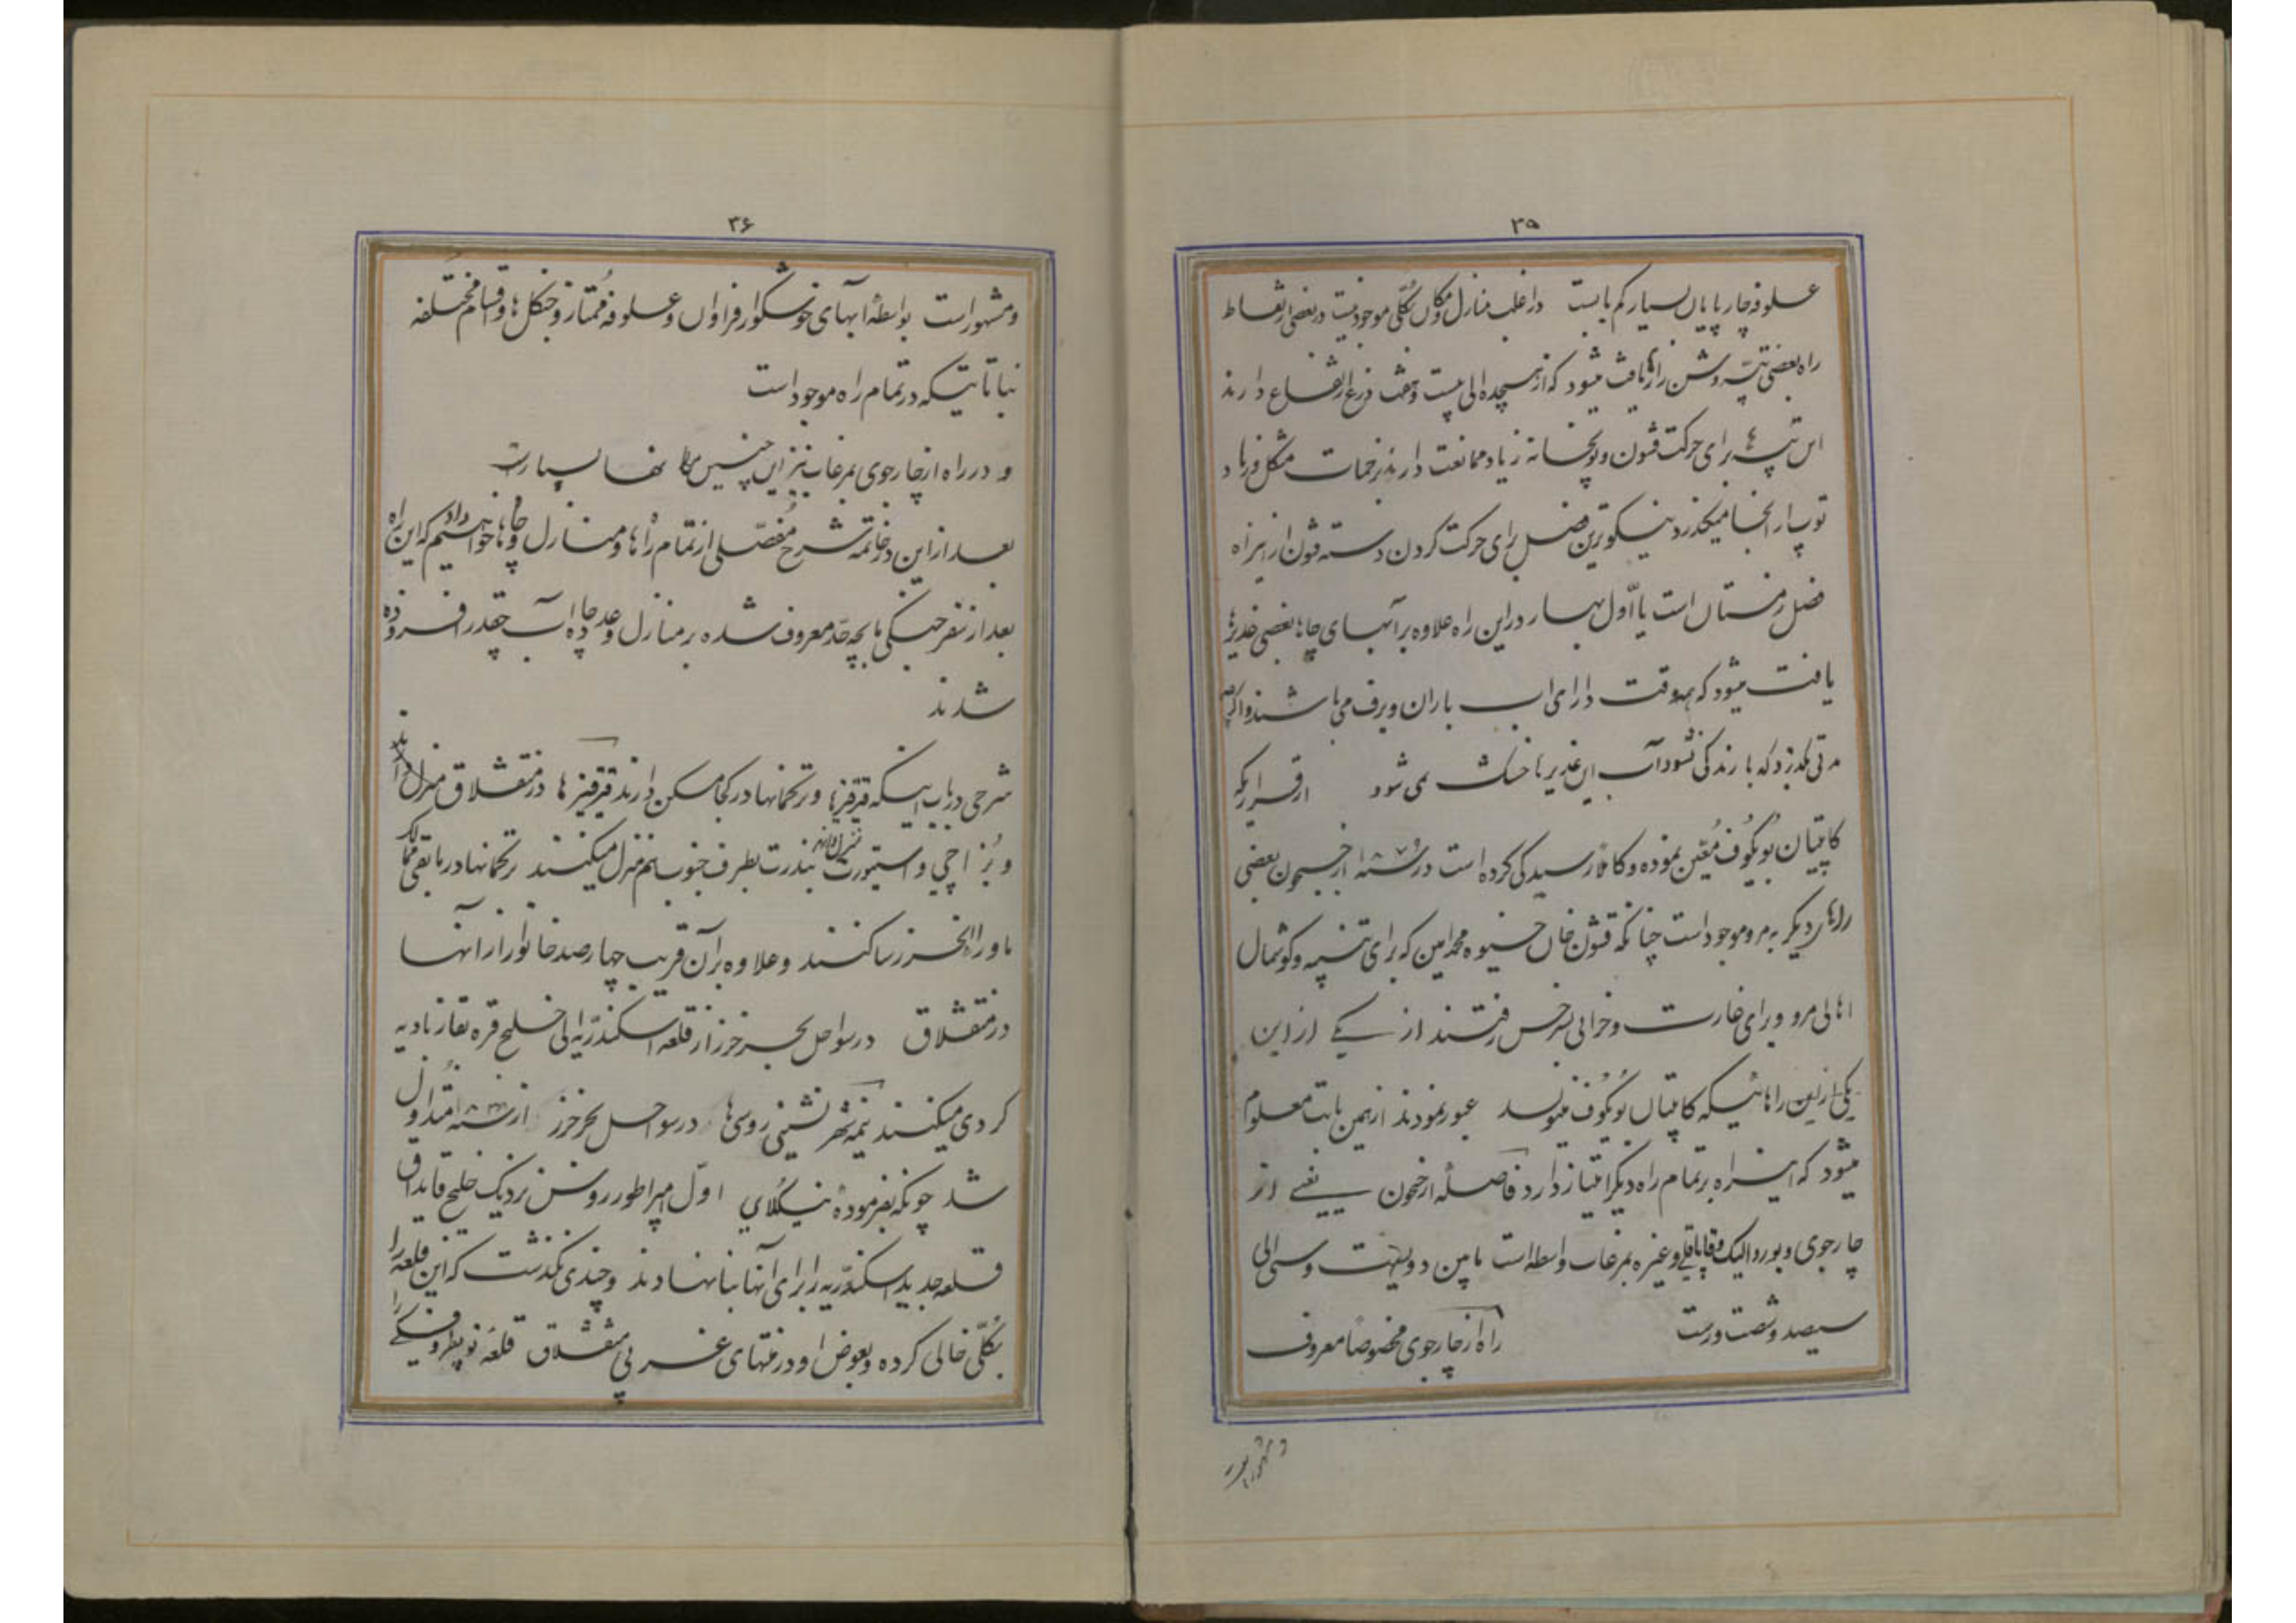 ۳۵
علوفه چارپایان بسیار کم یابست در اغلب منازل و مکان کلّی موجود نیست در بعضی از نقاط
راه بعضی تپه و شن زارها یافت میشود که از هیجده الی بیست و هفت ذرع ارتفاع دارند
این تپه ها برای حرکت قشون و توپخانه زیاد ممانعت دارند زحمات مشکل و زیاد
توپ از انجا میگذرد نیکوترین فصل برای حرکت کردن دسته قشون از این راه
فصل زمستان است یا اوّل بهار در این راه علاوه بر آبهای چاها بعضی غدیرها
یافت میشود که همه وقت دارای اب باران و برف می باشند و اگر
مدتی بگذرد که بارندگی نشود آب این غدیرها خشک می شود از قراریکه
کاپیتان بُویکُوف مُعیّن نموده و کاملا رسیدگی کرده است در سنه از جیحون بعضی
راهای دیگر به مرو موجود است چنانکه قشون خان خیوه محمد امین که برای تنبیه و گوشمال
اهالی مرو و برای غارت و خرابی سرخس رفتند از یکی از این
یکی از این راهائیکه کاپیتان بُویکُوف مینویسد عبور نمودند از همین بابت معلوم
میشود که این راه بر تمام راه دیگر امتیاز دارد فاصله از جیحون یعنی از
چارجوی و بوردالیک و قاباقلی و غیره بمرغاب واسطه است مابین دویست و سی الی
سیصد و شصت ورست راه از چارجوی مخصوصاً معروف
و مشهور است
۳۶
و مشهور است بواسطهٔ ابهای خوشگوار فراوان و علوفه مُمتاز و جنگل ها و اقسام مختلفه
نباتاتیکه در تمام راه موجود است
و در راه از چارجوی بمرغاب نیز این چنین بسیار است
بعد از این در خاتمه شرح مُفصّلی از تمام راهها و منازل و چاها خواهیم داد که این راه
بعد از سفر جنگی ما بچه حدّ معروف شده بر منازل و عدد چاه های آب چقدر افزوده
شدند
شرحی در باب اینکه قرقیزها و ترکمانها در کجا مسکن دارند قرقیزها در منقشلاق منزل دارند
و بُزاچی و استیورت بندرت بطرف جنوب هم منزل میکنند ترکمانها در مابقی ممالک
ماوراء الخزر ساکنند و علاوه بر آن قریب چهارصد خانوار از انها
در منقشلاق در سواحل بحر خزر از قلعه اسکندریّه الی خلیج قره بغاز بادیه
گردی میکنند نیمه شهر نشینی روسی ها در سواحل بحر خزر از سنه متداول
شد چونکه بفرموده نیکُلای اوّل امپراطور روس نزدیک خلیج قایداق
قلعه جدید اسکندریه را برای آنها بنا نهادند و چندی نگذشت که این قلعه را
بکُلّی خالی کرده و بعوض او در منتهای غربی منقشلاق قلعهٔ نوپطروفسکی را